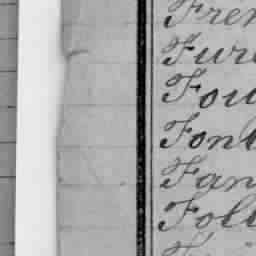 Fren
Fure
Fou
Font
Fan
Foll